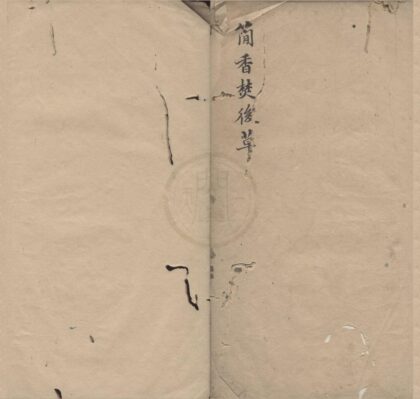 簡香焚後草